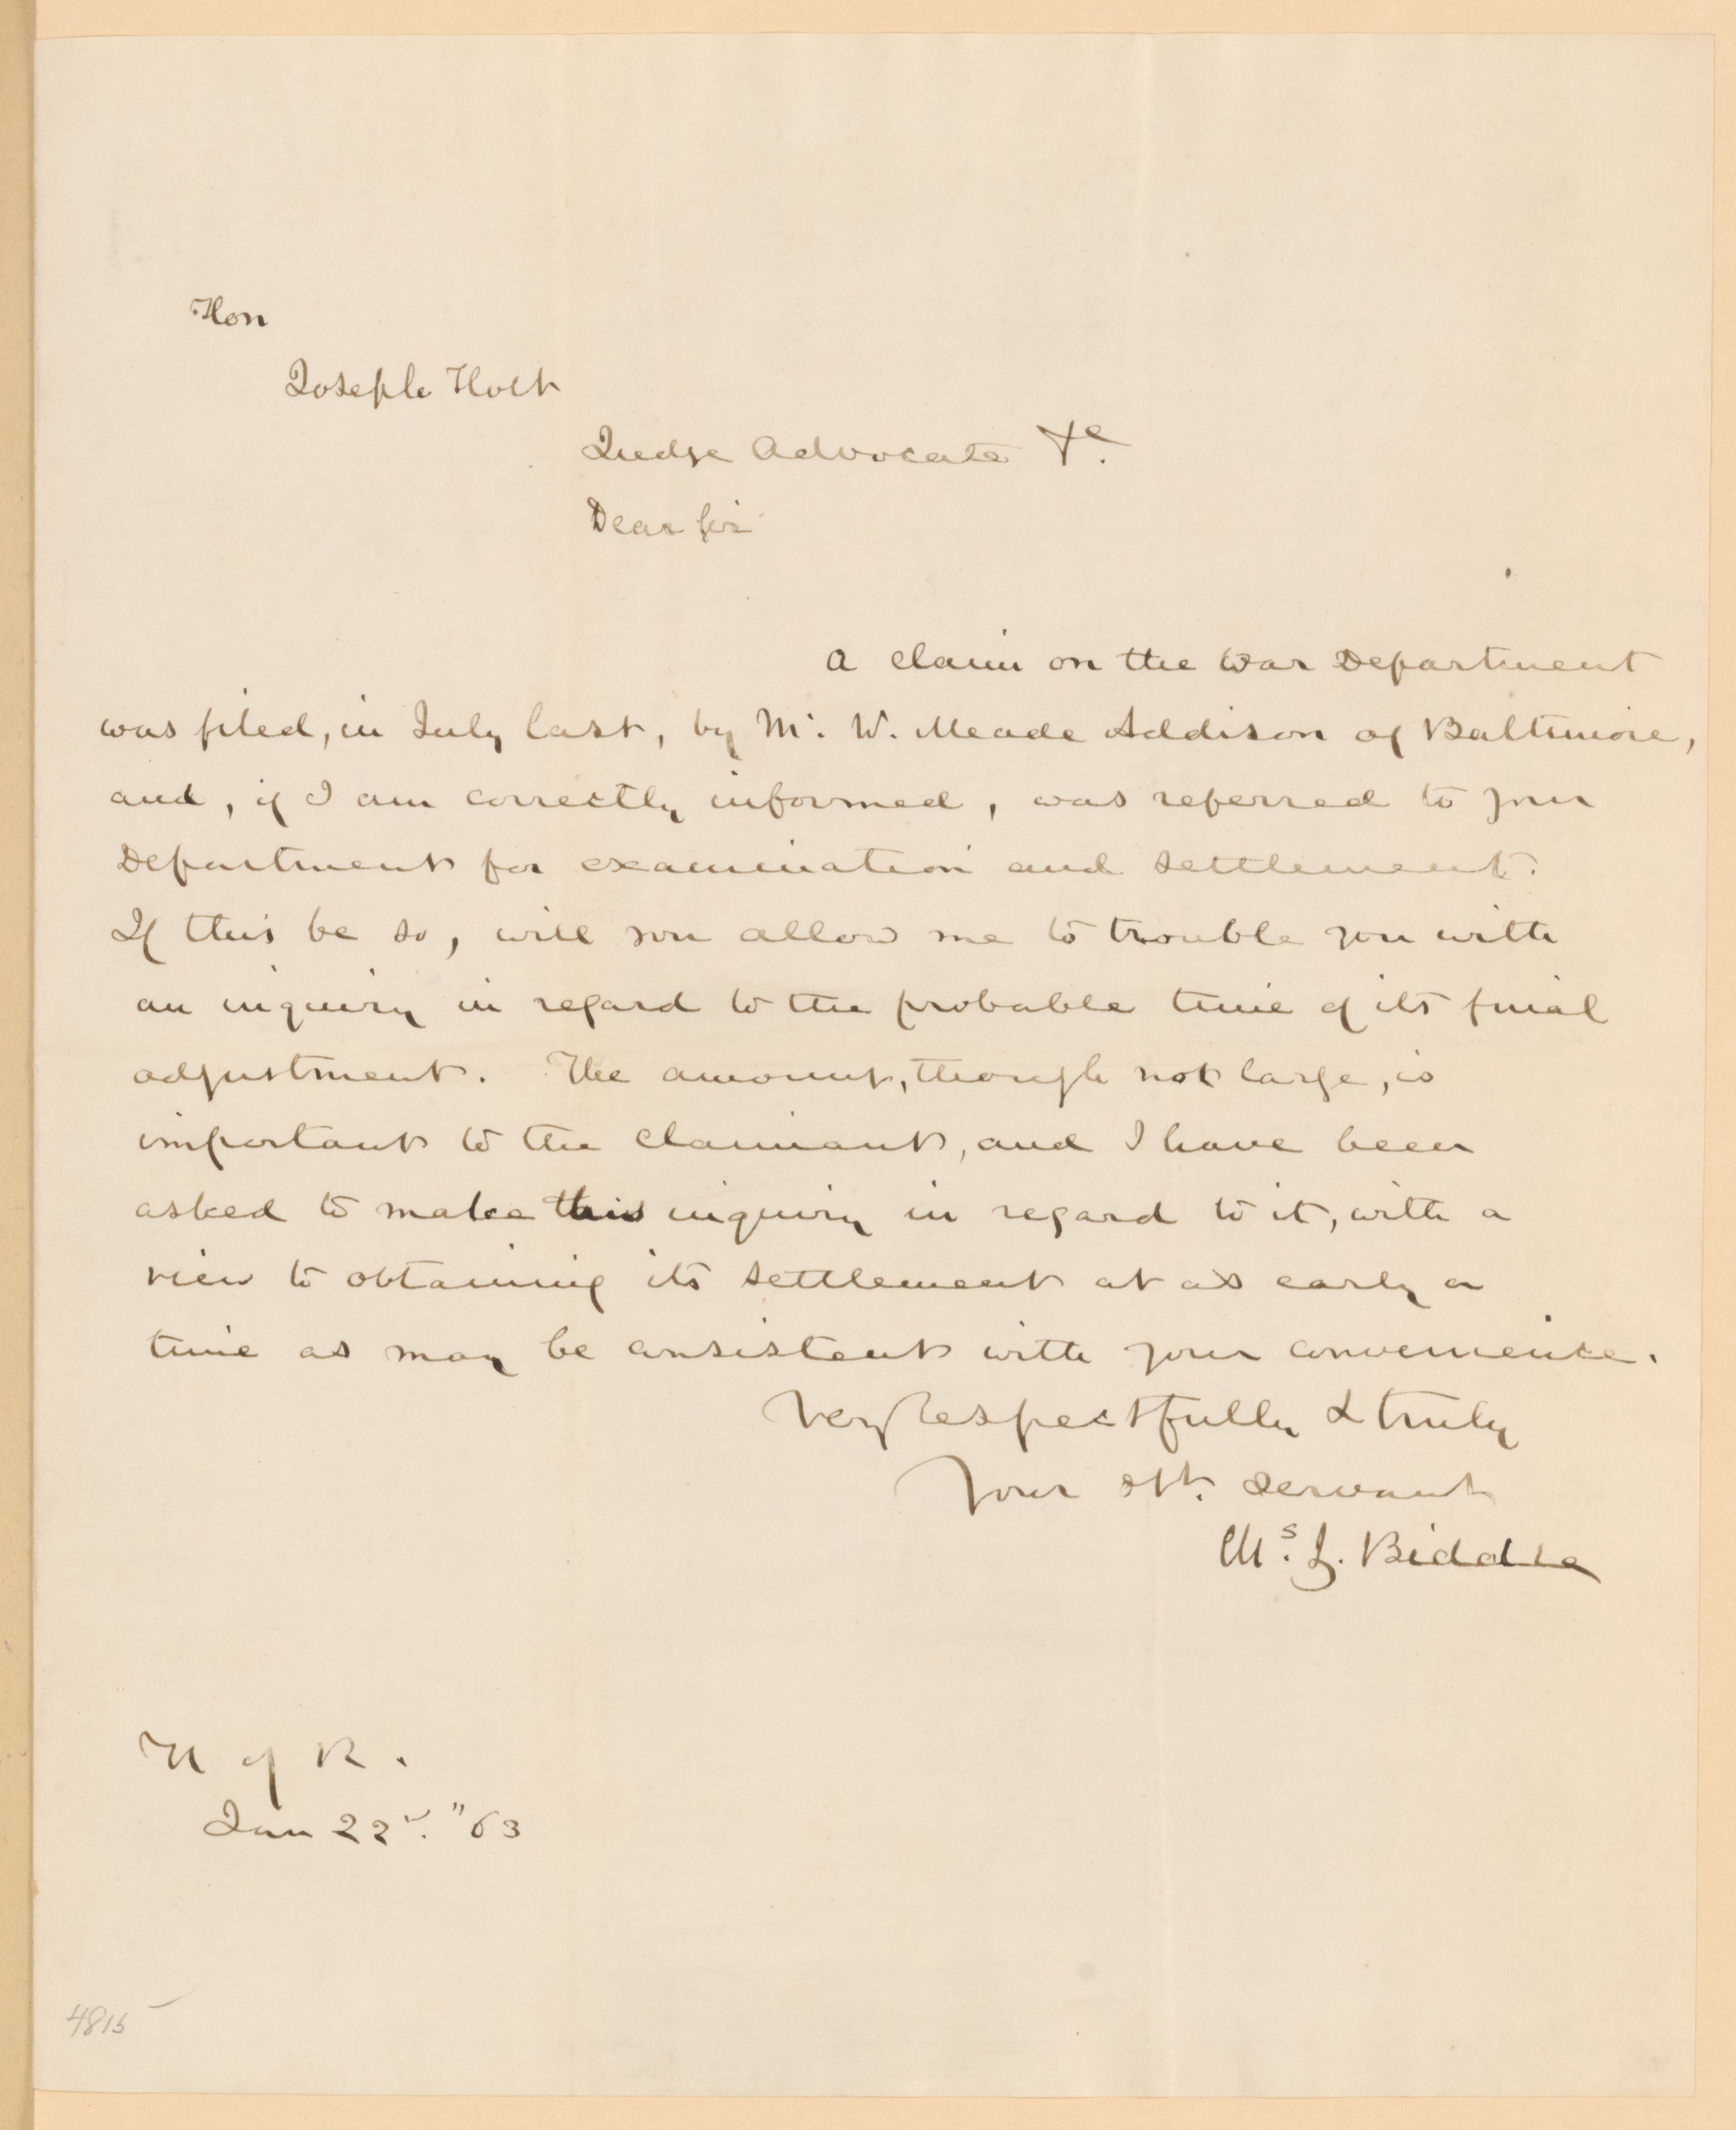 Hon
Joseph Holt
Judge Advocate &c.
Dear Sir
A claim on the War Department
was filed, in July last, by Mr. W. Meade Addison of Baltimore,
and, if I am correctly informed, was referred to your
Department for examination and settlement.
If this be so, will you allow me to trouble you with
an inquiry in regard to the probable time of its final
adjustment. The amount, though not large, is
important to the claimant, and I have been
asked to make this inquiry in regard to it, with a
view to obtaining its settlement at as early a
time as may be consistent with your convenience.
Very respectfully & truly
Your obt. servant
Biddle
H of R.
Jan 22d. "63
4815